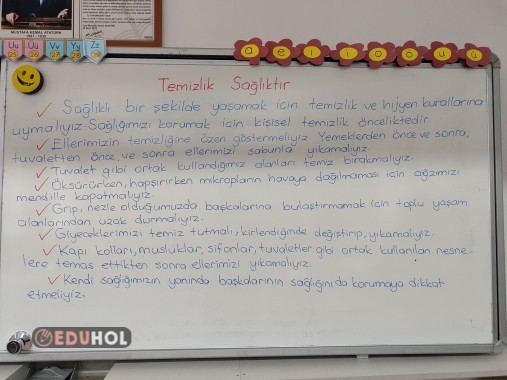 MUSTAFA KEMAL ATATÜRK
1881 - 1938
Uu Üü Vv Yy Zz
25 26 27 28 29
a e ı i o ö u ü
Temizlik Sağlıktır
✓ Sağlıklı bir şekilde yaşamak için temizlik ve hijyen kurallarına
uymalıyız. Sağlığımızı korumak için kişisel temizlik önceliktedir.
✓ Ellerimizin temizliğine özen göstermeliyiz. Yemeklerden önce ve sonra,
tuvaletten önce, ve sonra ellerimizi sabunla yıkamalıyız.
✓ Tuvalet gibi ortak kullandığımız alanları temiz bırakmalıyız.
✓ Öksürürken, hapşırırken mikropların havaya dağılmaması için ağzımızı
mendille kapatmalıyız.
✓ Grip, nezle olduğumuzda başkalarına bulaştırmamak için toplu yaşam
alanlarından uzak durmalıyız.
✓ Giyeceklerimizi temiz tutmalı, kirlendiğinde değiştirip, yıkamalıyız.
✓ Kapı kolları, musluklar, sifonlar, tuvaletler gibi ortak kullanılan nesne-
lere temas ettikten sonra ellerimizi yıkamalıyız.
✓ Kendi sağlığımızın yanında başkalarının sağlığını da korumaya dikkat
etmeliyiz.
EDUHOL